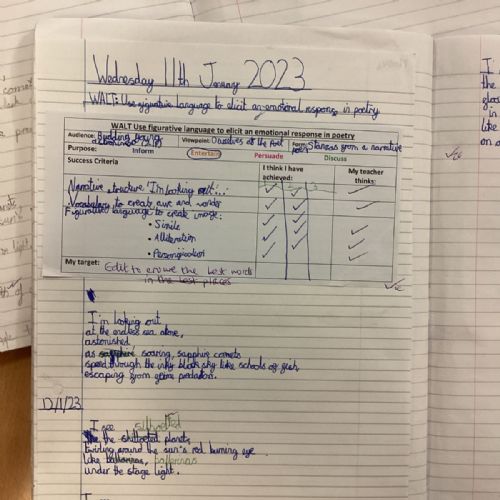 Wednesday 11th January 2023
WALT: Use figurative language to elicit an emotional response in poetry
WALT Use figurative language to elicit an emotional response in poetry
Audience: Budding young
Viewpoint: Ourselves as the Poet
Form: Stanzas from a narrative poem
Purpose:
Inform
Entertain
Persuade
Discuss
Success Criteria
I think I have achieved:
My teacher thinks:
1 2 3
Narrative structure 'I'm looking out...'
Vocabulary to create awe and wonder
Figurative language to create image:
• Simile
• Alliteration
• Personification
My target: Edit to ensure the best words
in the best places
I'm looking out
at the endless sea alone,
astonished
as sapphire soaring, sapphire comets
speed through the inky, black sky like schools of fish
escaping from game predators.
12/1/23
I see
the planets
twirling around the sun's red burning eye
like ballerinas, ballerinas
under the stage light.
I see
I
the
in
like
on a